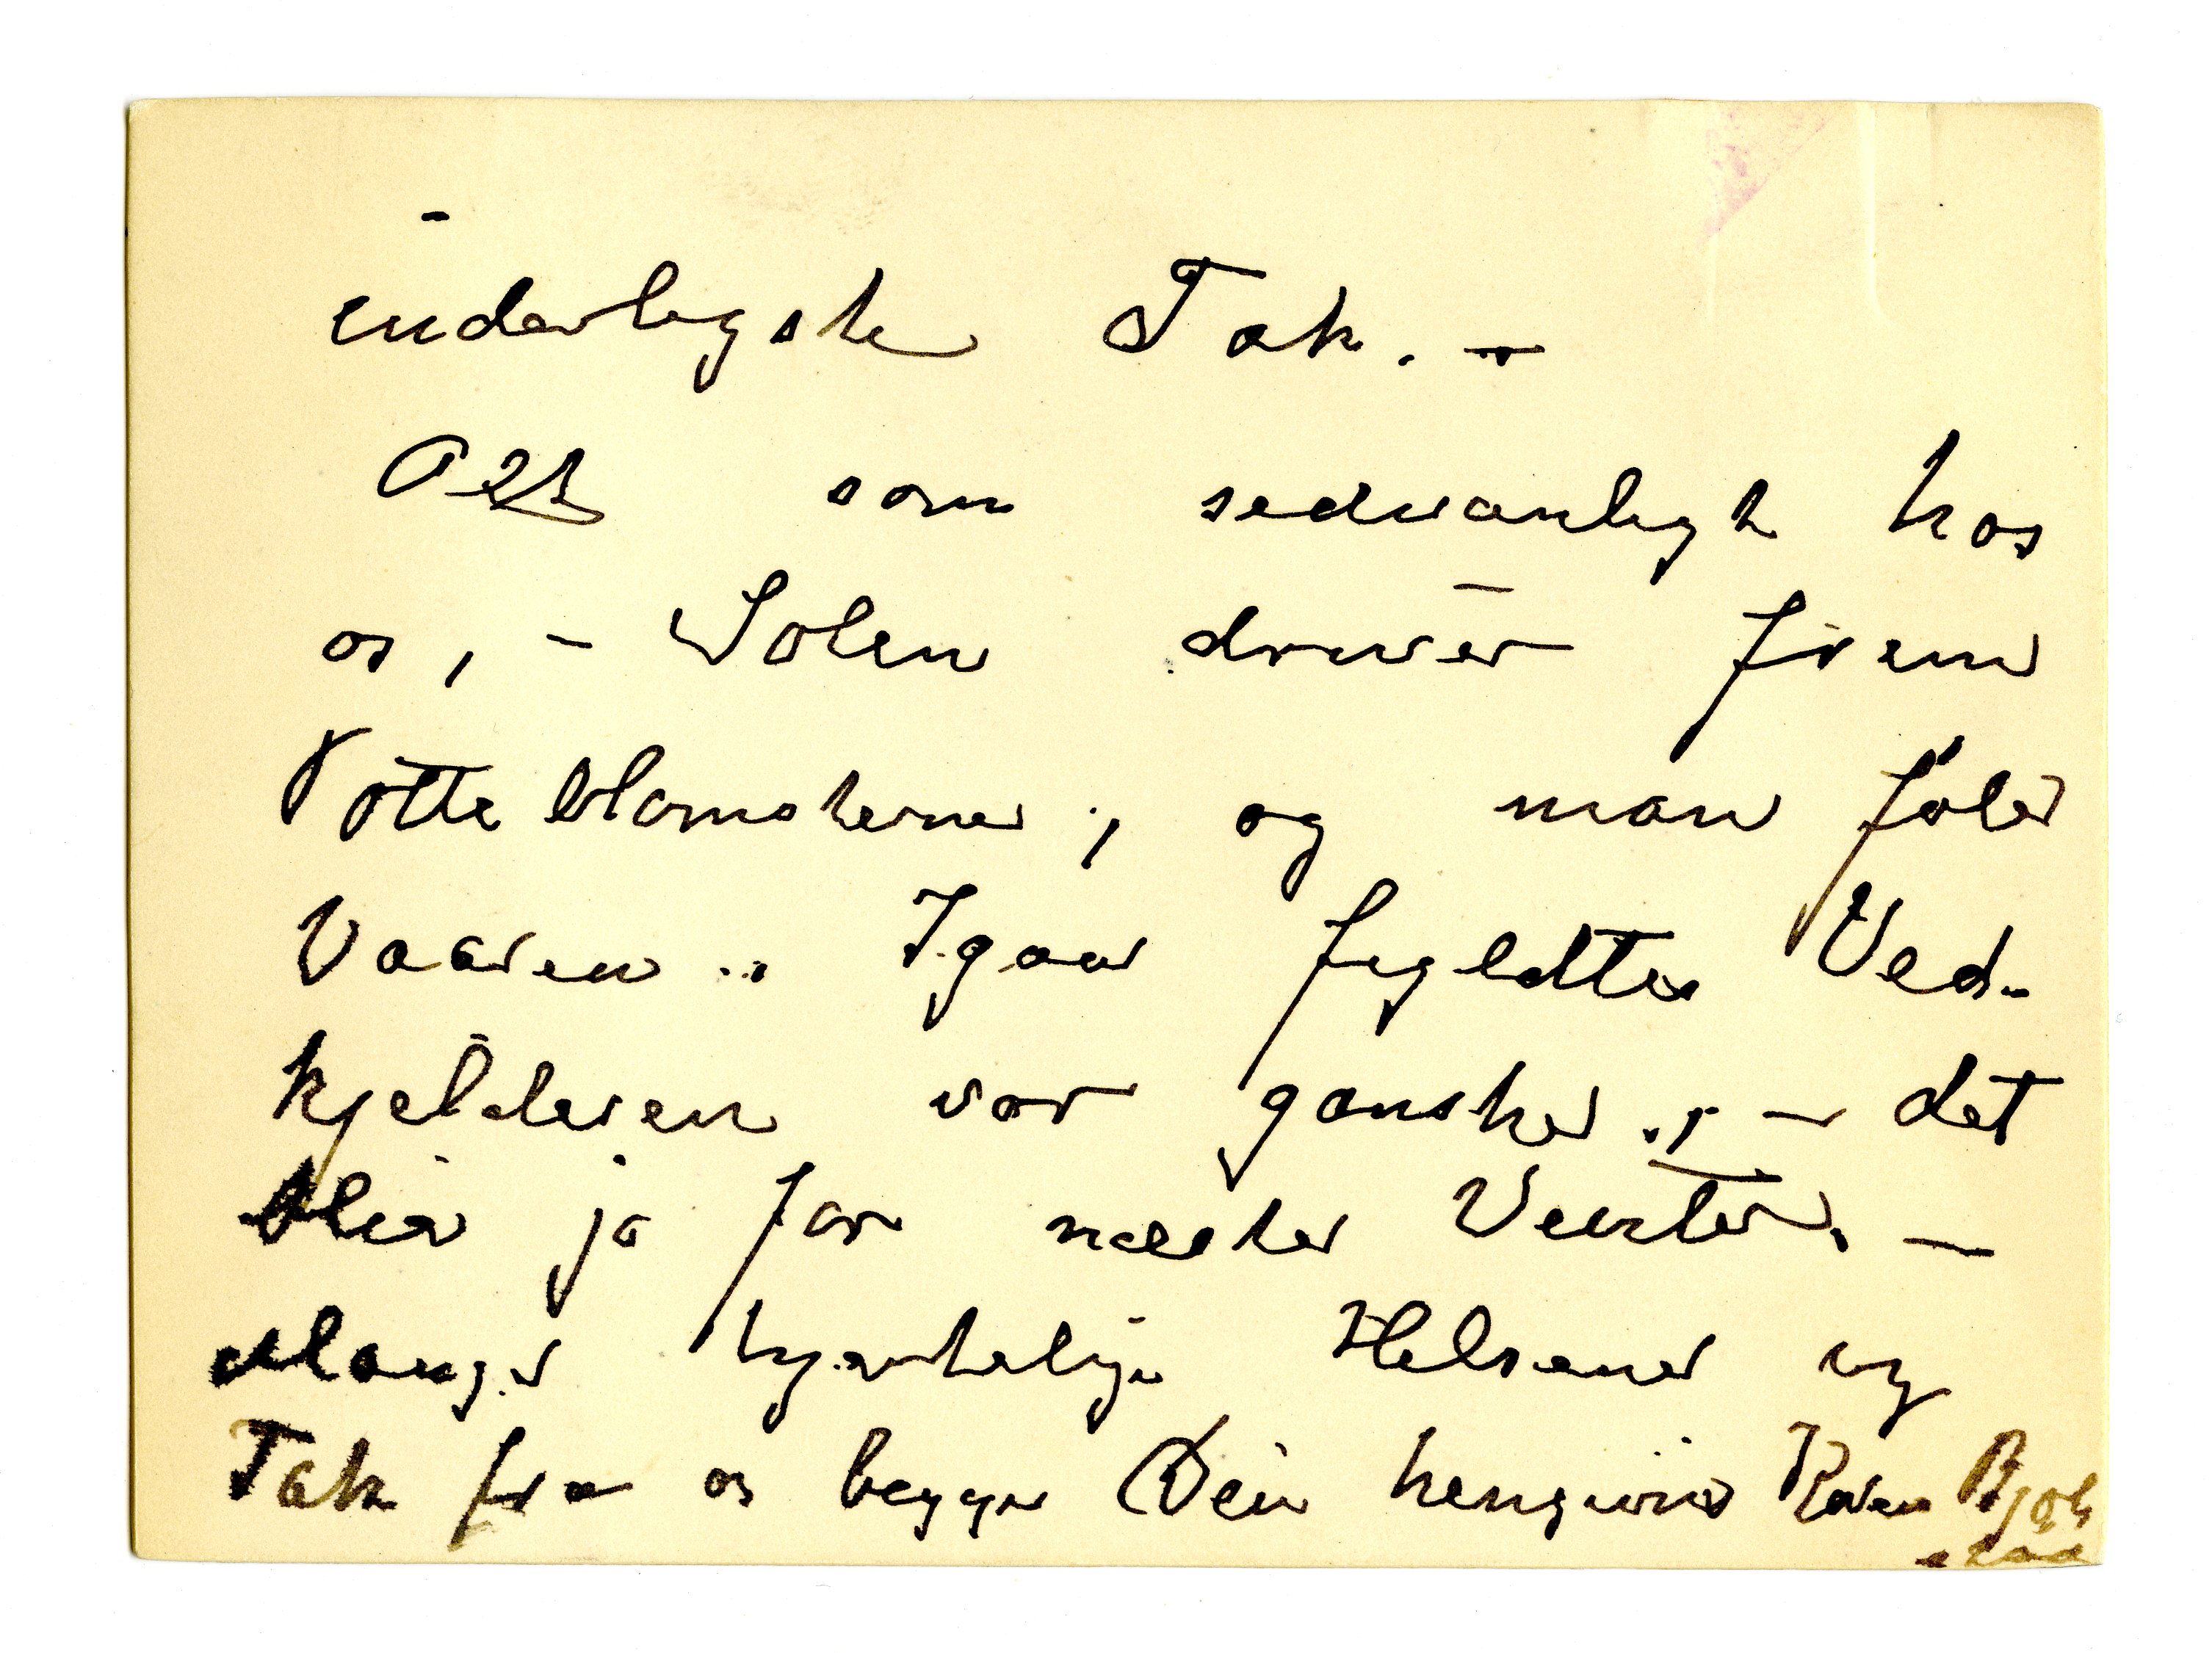 inderligste Tak. –
Alt som sedvanligt hos
os, – Solen driver frem
Potteblomsterne, og man føler
Vaaren. Igaar fyldtes Ved-
kjelderen vor ganske, – det
blir ja for næste Vinter. –
Mange hjertelige Helsener og
Tak fra os begge Din hengivne Karen Bjøl
stad